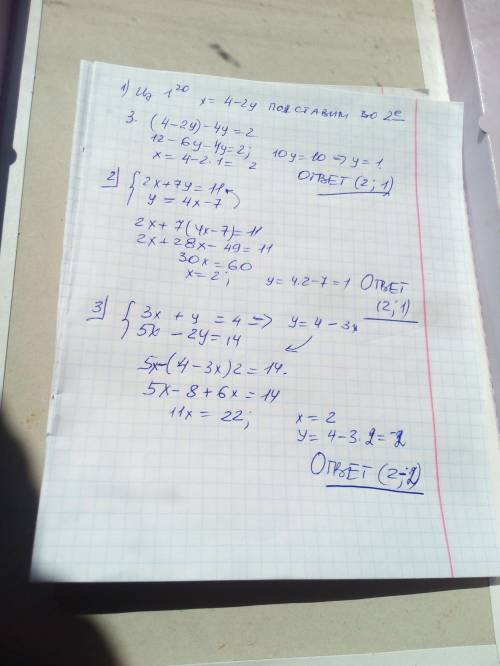 1) Из 1го x = 4-2y подставим во 2е
3. (4-2y)-4y=2
12-6y-4y=2; 10y=10 => y=1
x=4-2·1= 2
Ответ (2; 1)
2) { 2x+7y=11
y = 4x-7
2x+7(4x-7)=11
2x+28x-49=11
30x=60
x=2; y=4·2-7=1 Ответ
(2; 1)
3) { 3x + y = 4 => y=4-3x
5x - 2y=14
5x-(4-3x)2=14.
5x-8+6x=14
11x = 22; x=2
y=4-3·2=-2
Ответ (2;-2)